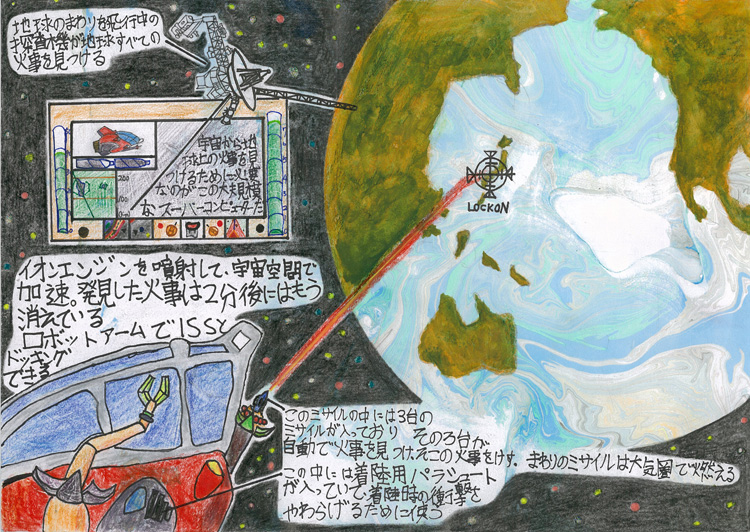 地球のまわりを飛行中の
探査機が地球すべての
火事を見つける
宇宙から地
球上の火事を見
つけるために必要
なのがこの大規模
なスーパーコンピューターだ
200
100
LOCKON
イオンエンジンを噴射して、宇宙空間で
加速。発見した火事は2分後にはもう
消えている
ロボットアームでISSと
ドッキング
できる
このミサイルの中には3台の
ミサイルが入っており その3台が
自動で火事を見つけ、その火事をけす。まわりのミサイルは大気圏で燃える
この中には着陸用パラシュート
が入っていて、着陸時の衝撃を
やわらげるために使う